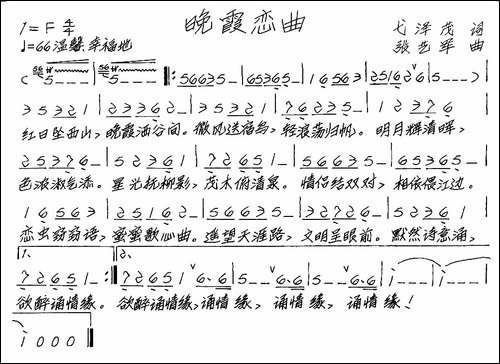 晚霞恋曲
1=F 4/4 弋泽茂 词
♩=66 温馨 幸福地 张艺军 曲
5 - - - | 5 - - - 𝄆 5 6 6 3 5 - | 6 5 3 6 5 - | 1 6 5 6 3 | 2 5 1 6 2 6 | 5 - - - )
3 5 3 2 1 | 2 3 3 6 2 - | 3 5 3 2 1 | 7 6 2 3 5 - | 1 2 3 7 6
红日坠西山,晚霞洒谷间。微风送宿鸟,轻浪荡归帆。明月辉清晖,
2 5 3 7 6 - | 5 2 3 6 1 | 7 2 6 5 1 - | 5 6 6 3 5 | 6 5 3 6 5 -
色浓淑毛添。星光抚柳影,茂木俏清泉。情侣结双对,相依偎江边。
1 6 5 6 3 | 2 5 1 6 2 - | 5 6 6 3 5 | 3 2 7 2 6 - | 5 2 3 6 1
恋虫窃窃语,蜜蜜歌心曲。遥望天涯路,文明呈眼前。默然诗意涌,
1. 2.
7 2 6 5 1 - 𝄇 7 2 6 5 1 6·6 | 5 - - 6·6 | 5 - - 6·6 | i - - - | i - - -
欲醉诵情缘。欲醉诵情缘,诵情缘,诵情缘,诵情缘!
i 0 0 0